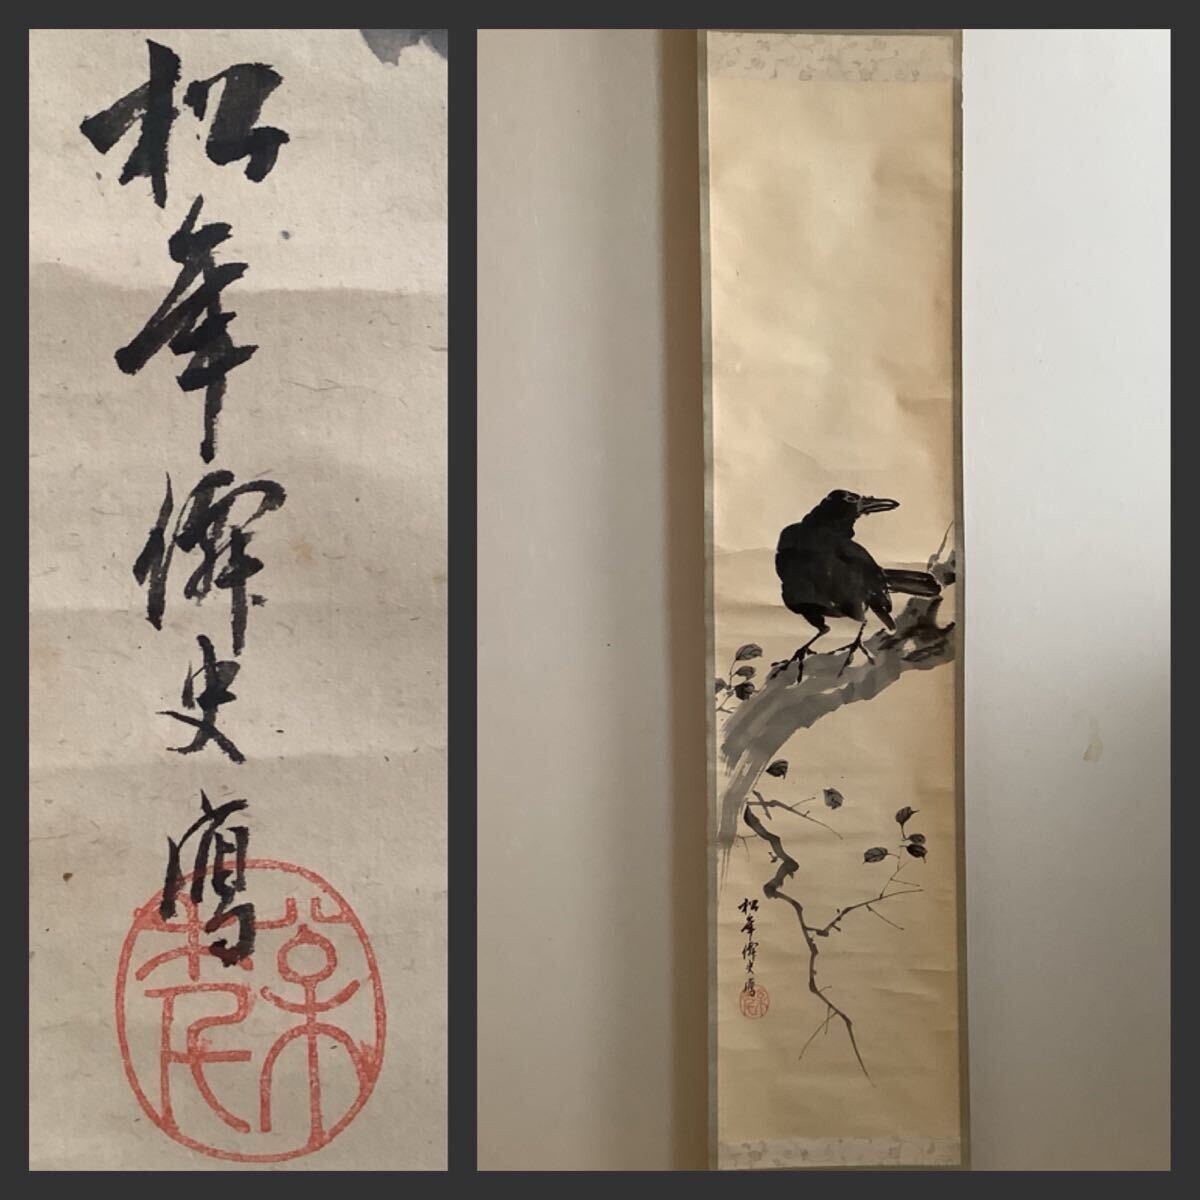 松年僊史寫
松年僊史寫